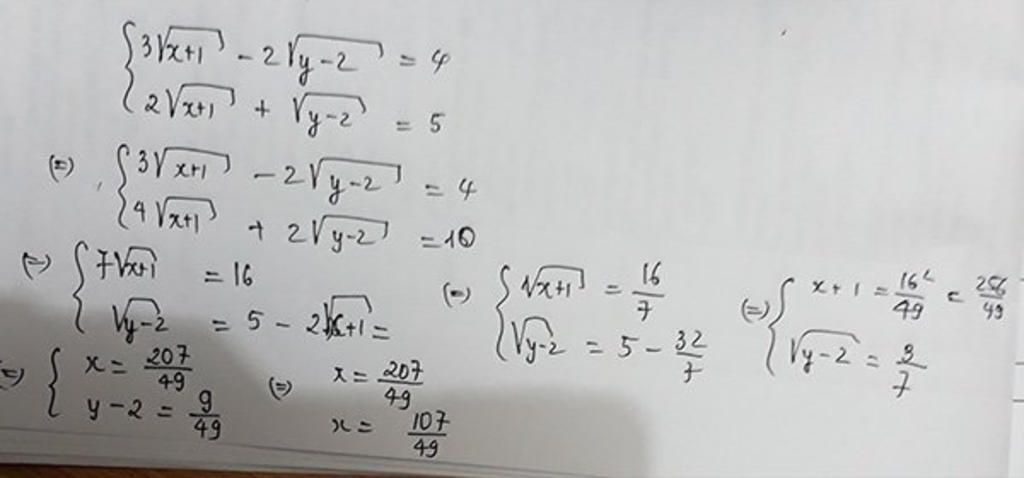 { 3√(x+1) - 2√(y-2) = 4
2√(x+1) + √(y-2) = 5
(=) { 3√(x+1) - 2√(y-2) = 4
4√(x+1) + 2√(y-2) = 10
(=) { 7√(x+1) = 16
√(y-2) = 5 - 2√(x+1) =
(=) { √(x+1) = 16/7
√(y-2) = 5 - 32/7
(=) { x+1 = 16²/49 = 256/49
√(y-2) = 3/7
(=) { x = 207/49
y-2 = 9/49
(=) x = 207/49
x = 107/49